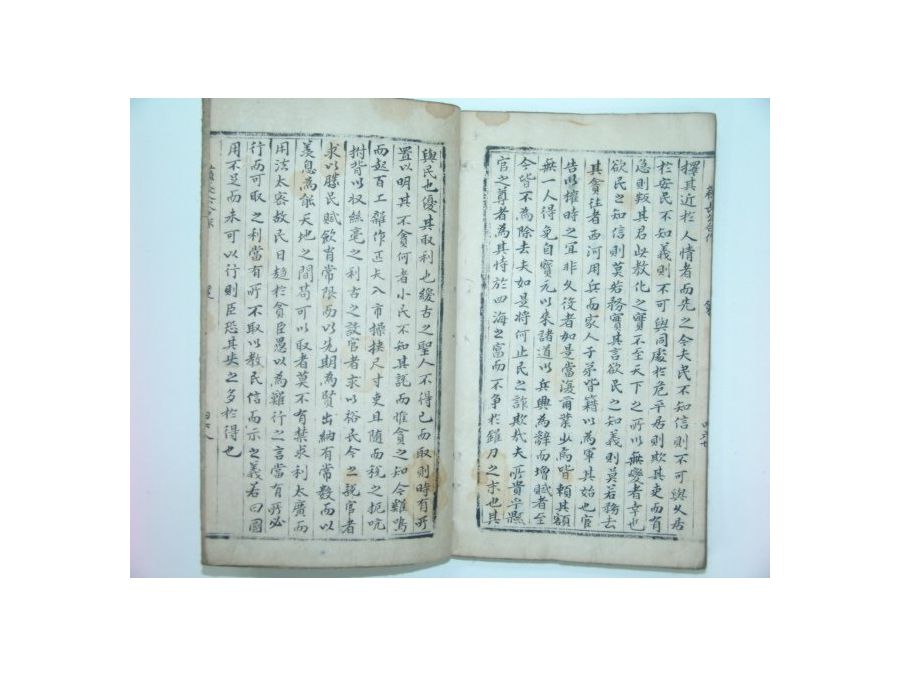 擇其近於人情者而先之今夫民不知信則不可與久居
於安民不知義則不可與同處於危平居則欺其吏而有
急則叛其君此教化之實不至天下之所以無變者幸也
欲民之知信則莫若務實其言欲民之知義則莫若務去
其貪往者西河用兵而家人子弟皆籍以為軍其始也官
告以權時之宜非久役者如是當復爾業少焉皆賴其額
無一人得免自寶元以來諸道以兵興為辭而增賦者至
今皆不為除去夫如是將何止民之詐欺哉夫所貴乎縣
官之尊者為其恃於四海之富而不爭於錐刀之末也其
與民也優其取利也緩古之聖人不得已而取則時有所
置以明其不貪何者小民不知其說而惟貪之知今雞鳴
而起百工雜作匹夫入市操挾尺寸吏且隨而稅之扼吭
拊背以收絲毫之利古之設官者求以裕民今之設官者
求以勝民賦斂有常限而以先期為賢出納有常數而以
羨息為能天地之間苟可以取者莫不有禁求利太廣而
用法太密故民日趨於貪臣愚以為難行之言當有所必
行而可取之利當有所不取以教民信而示之義若曰國
用不足而未可以行則臣恐其失之多於得也